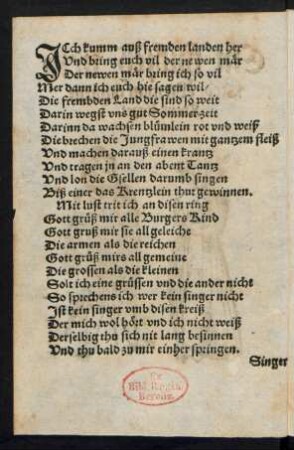 ICh kumm auß fremden landen her
Vnd bring euch vil der newen mär
Der newen mär bring ich so vil
Mer dann ich euch hie sagen wil/
Die frembden Land die sind so weit
Darin wegst vns gut Sommerzeit
Darinn da wachsen blümlein rot vnd weiß
Die brechen die Jungfrawen mit gantzem fleiß
Vnd machen darauß einen krantz
Vnd tragen jn an den abent Tantz
Vnd lon die Gsellen darumb singen
Biß einer das Krentzlein thut gewinnen.
Mit lust trit ich an disen ring
Gott grüß mir alle Burgers Kind
Gott gruß mir sie all geleiche
Die armen als die reichen
Gott grüß mirs all gemeine
Die grossen als die kleinen
Solt ich eine grüssen vnd die ander nicht
So sprechens ich wer kein singer nicht
Ist kein singer vmb disen kreiß
Der mich wol hört vnd ich nicht weiß
Derselbig thu sich nit lang besinnen
Vnd thu bald zu mir einher springen.
Singer
Ex
Bibl. Regia
Berolin.